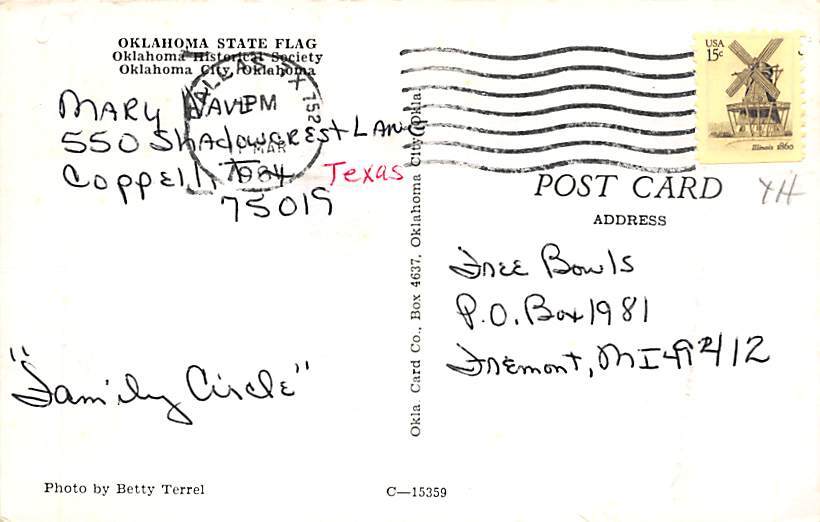 OKLAHOMA STATE FLAG
Oklahoma Historical Society
Oklahoma City, Oklahoma
MARY
550 Shadowcrest Lane
Coppell, Texas
75019
PM
MAR
1984
752
USA
15c
Illinois 1860
POST CARD
YH
ADDRESS
Free Bowls
P.O. Box 1981
Fremont, MI 49412
"Family Circle"
Okla. Card Co., Box 4637, Oklahoma City, Okla.
Photo by Betty Terrel
C—15359